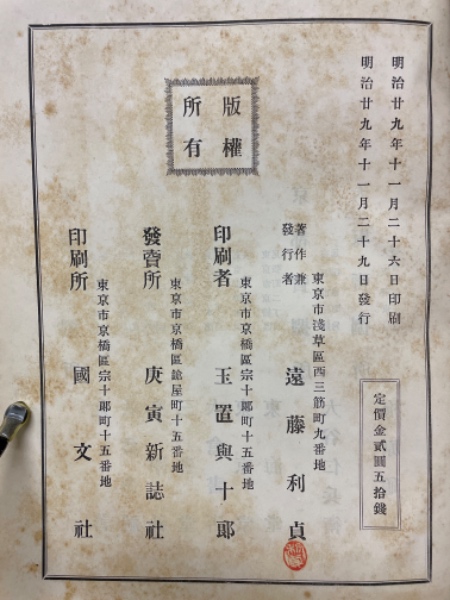 明治廿九年十一月二十六日印刷
明治廿九年十一月二十九日發行
定價金貳圓五拾錢
版權
所有
東京市淺草區西三筋町九番地
著作兼
發行者
遠藤利貞
東京市京橋區宗十郞町十五番地
印刷者
玉置與十郞
東京市京橋區鎗屋町十五番地
發賣所
庚寅新誌社
東京市京橋區宗十郞町十五番地
印刷所
國文社